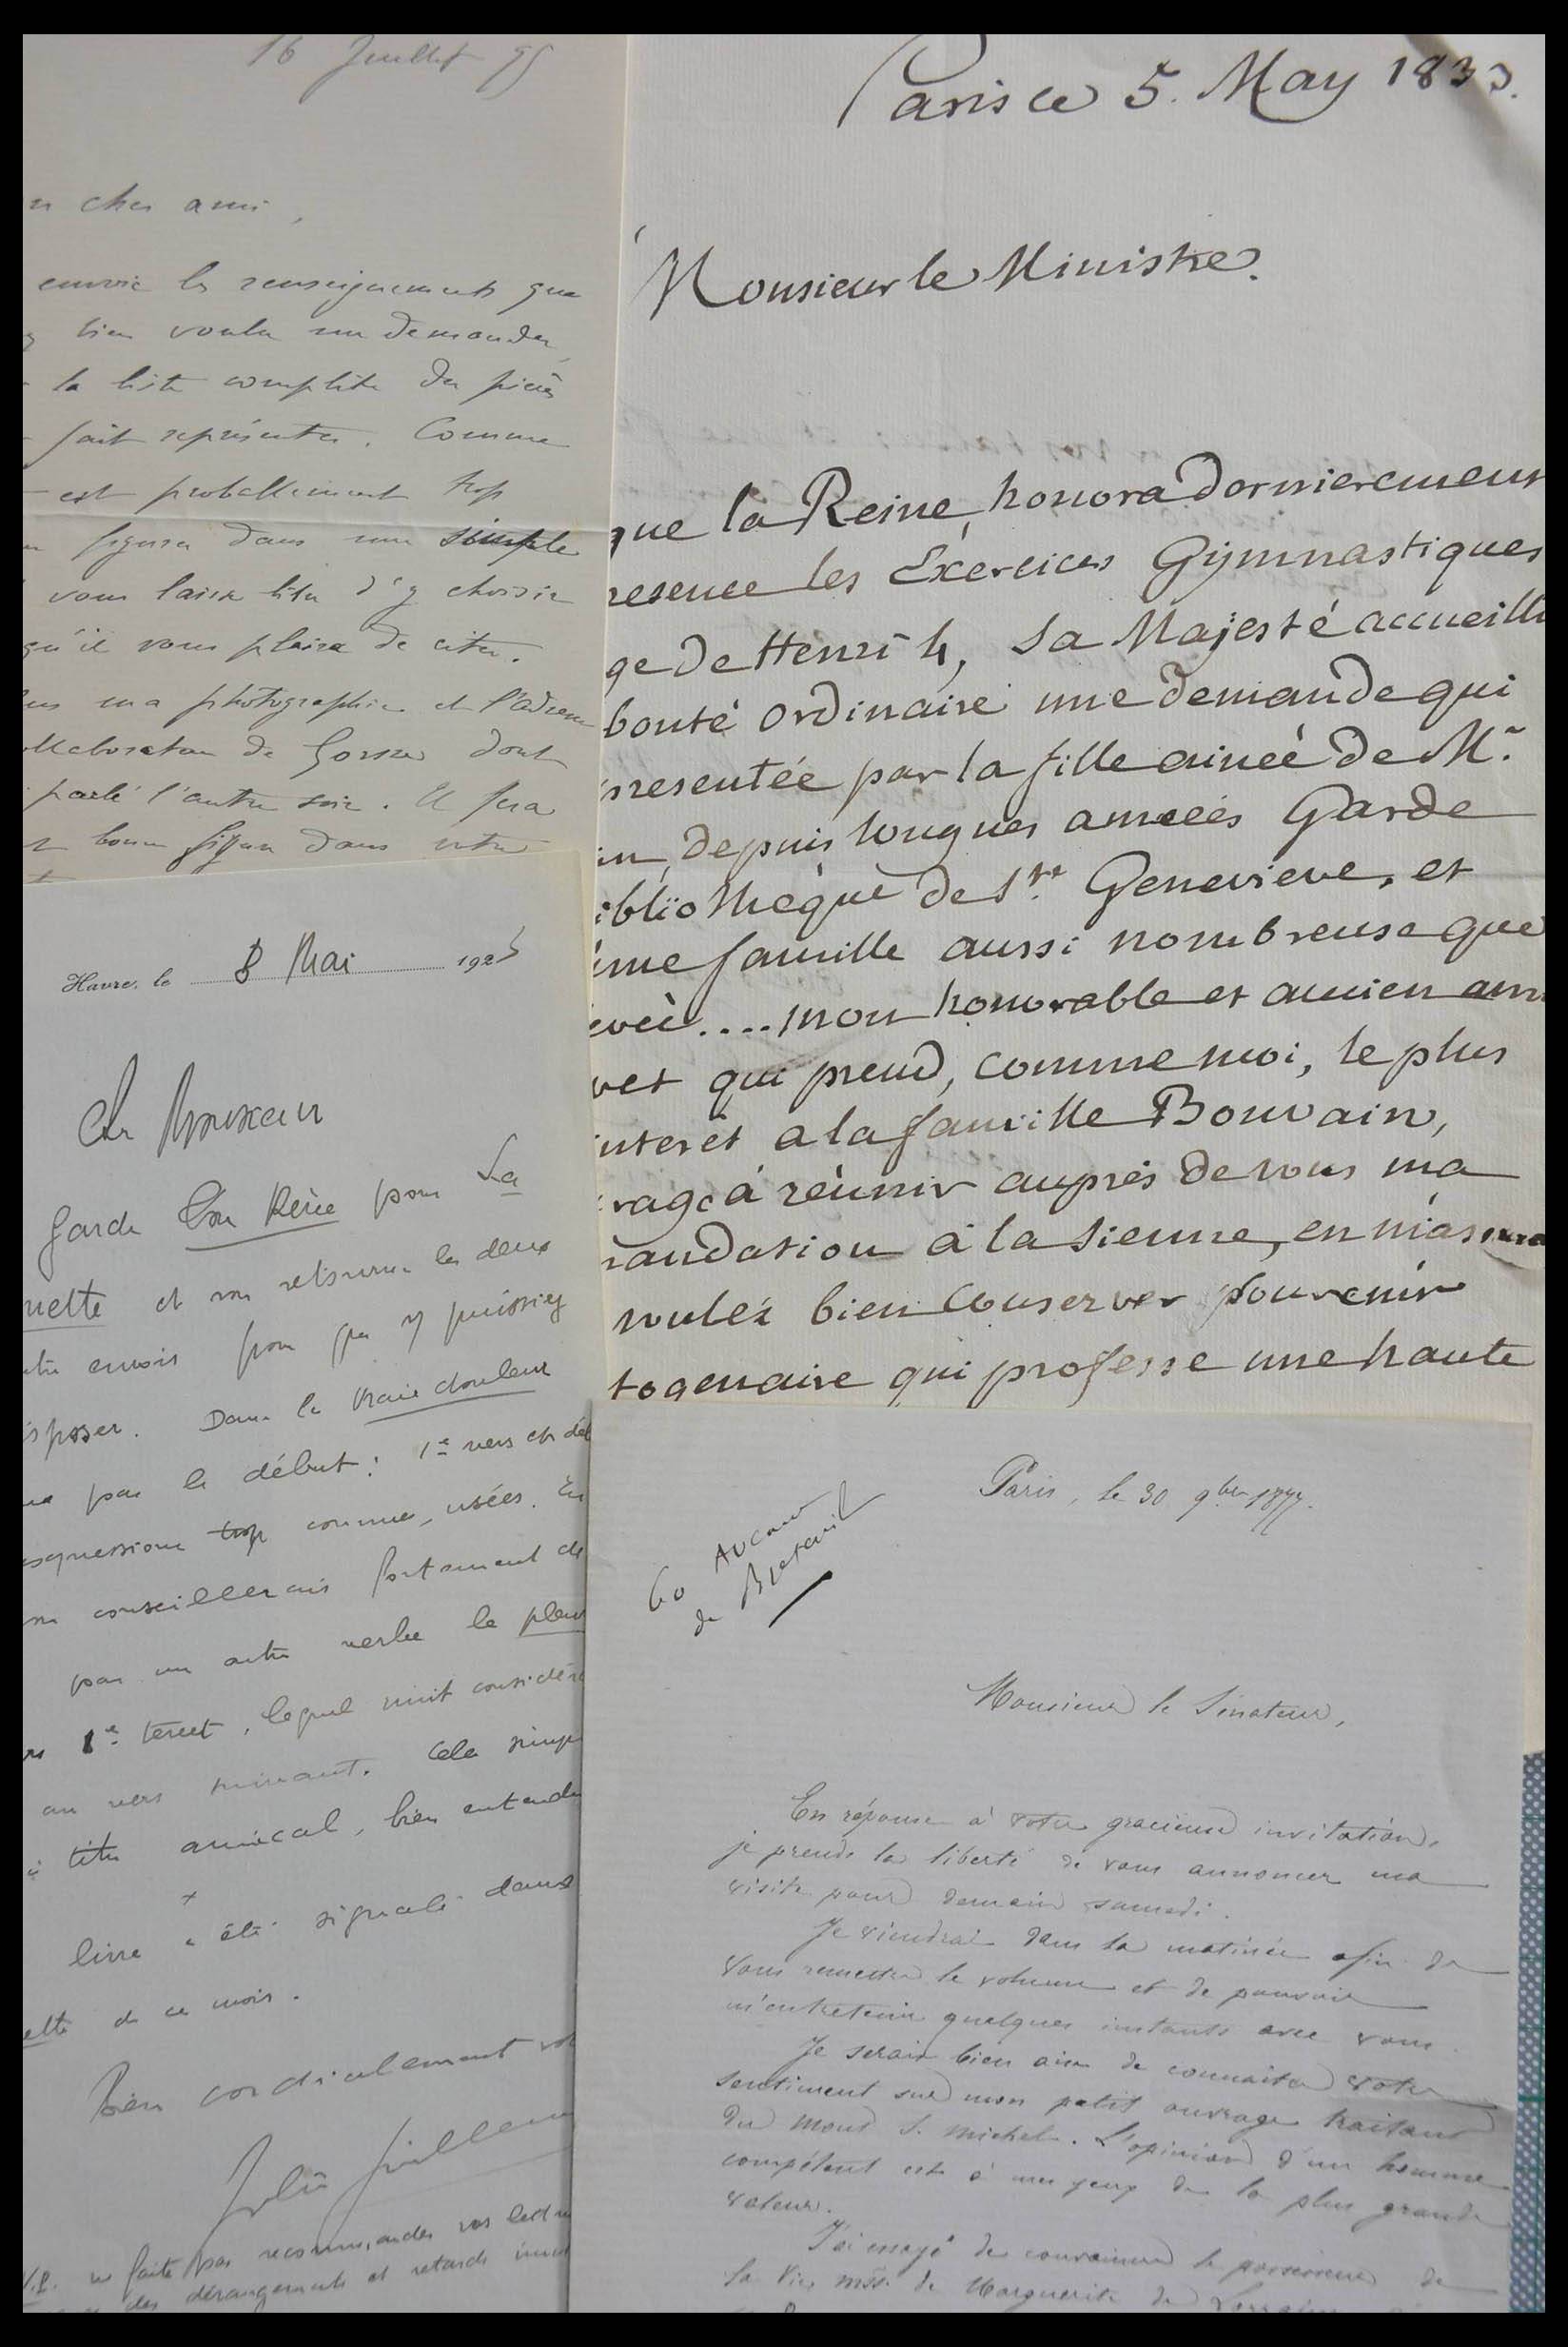 16 Juillet 95
cher ami,
envoie les renseignements que
bien voulu me demander,
la liste complète des pièces
fait représenter. Comme
est probablement trop
figurer dans une simple
vous laisse libre d'y choisir
qu'il vous plaira de citer.
ma photographie et l'adresse
de Gorsse dont
parlé l'autre soir. Il fera
bonne figure dans votre
Paris ce 5. May 1833.
Monsieur le Ministre.
que la Reine, honora dernierement
resence les Exercices Gymnastiques
ge de Henri 4, Sa Majesté accueilli
bonté ordinaire une demande qui
presentée par la fille ainée de Mr
depuis longues années Garde
ibliothèque de Ste Genevieve, et
ime famille aussi nombreuse que
evée.... mon honorable et ancien ami
vet qui prend, comme moi, le plus
interêt a la famille Bouvain,
rage à réunir auprès de vous ma
mandation à la sienne, en m'assurant
voulez bien conserver souvenir
togenaire qui professe une haute
Havre, le 8 Mai 1925
Cher Monsieur
garde Son Rêve pour La
uette et vous retourne les deux
autres envois pour que vous puissiez
isposer. Dans la Vraie douleur
pas le début : 1er vers et
expressions trop connues, usées. En
conseillerais fortement de
par un autre verbe le pleur
1er tercet, lequel nuit
au vers suivant. Cela
à titre amical, bien entendu
+
livre a été signalé dans
ette de ce mois.
Bien cordialement
Julia
ne faites pas recommander vos lettres
des dérangements et retards
Paris, le 30 9bre 1877.
60 Avenue
de Breteuil
Monsieur le Sénateur,
En réponse à votre gracieuse invitation,
je prends la liberté de vous annoncer ma
visite pour demain samedi.
Je viendrai dans la matinée afin de
vous remettre le volume et de pouvoir
m'entretenir quelques instants avec vous.
Je serais bien aise de connaître votre
sentiment sur mon petit ouvrage traitant
du Mont S. Michel. L'opinion d'un homme
compétent est à mes yeux de la plus grande
valeur.
J'ai essayé de convaincre le possesseur de
la Vie mss. de Marguerite de Lorraine